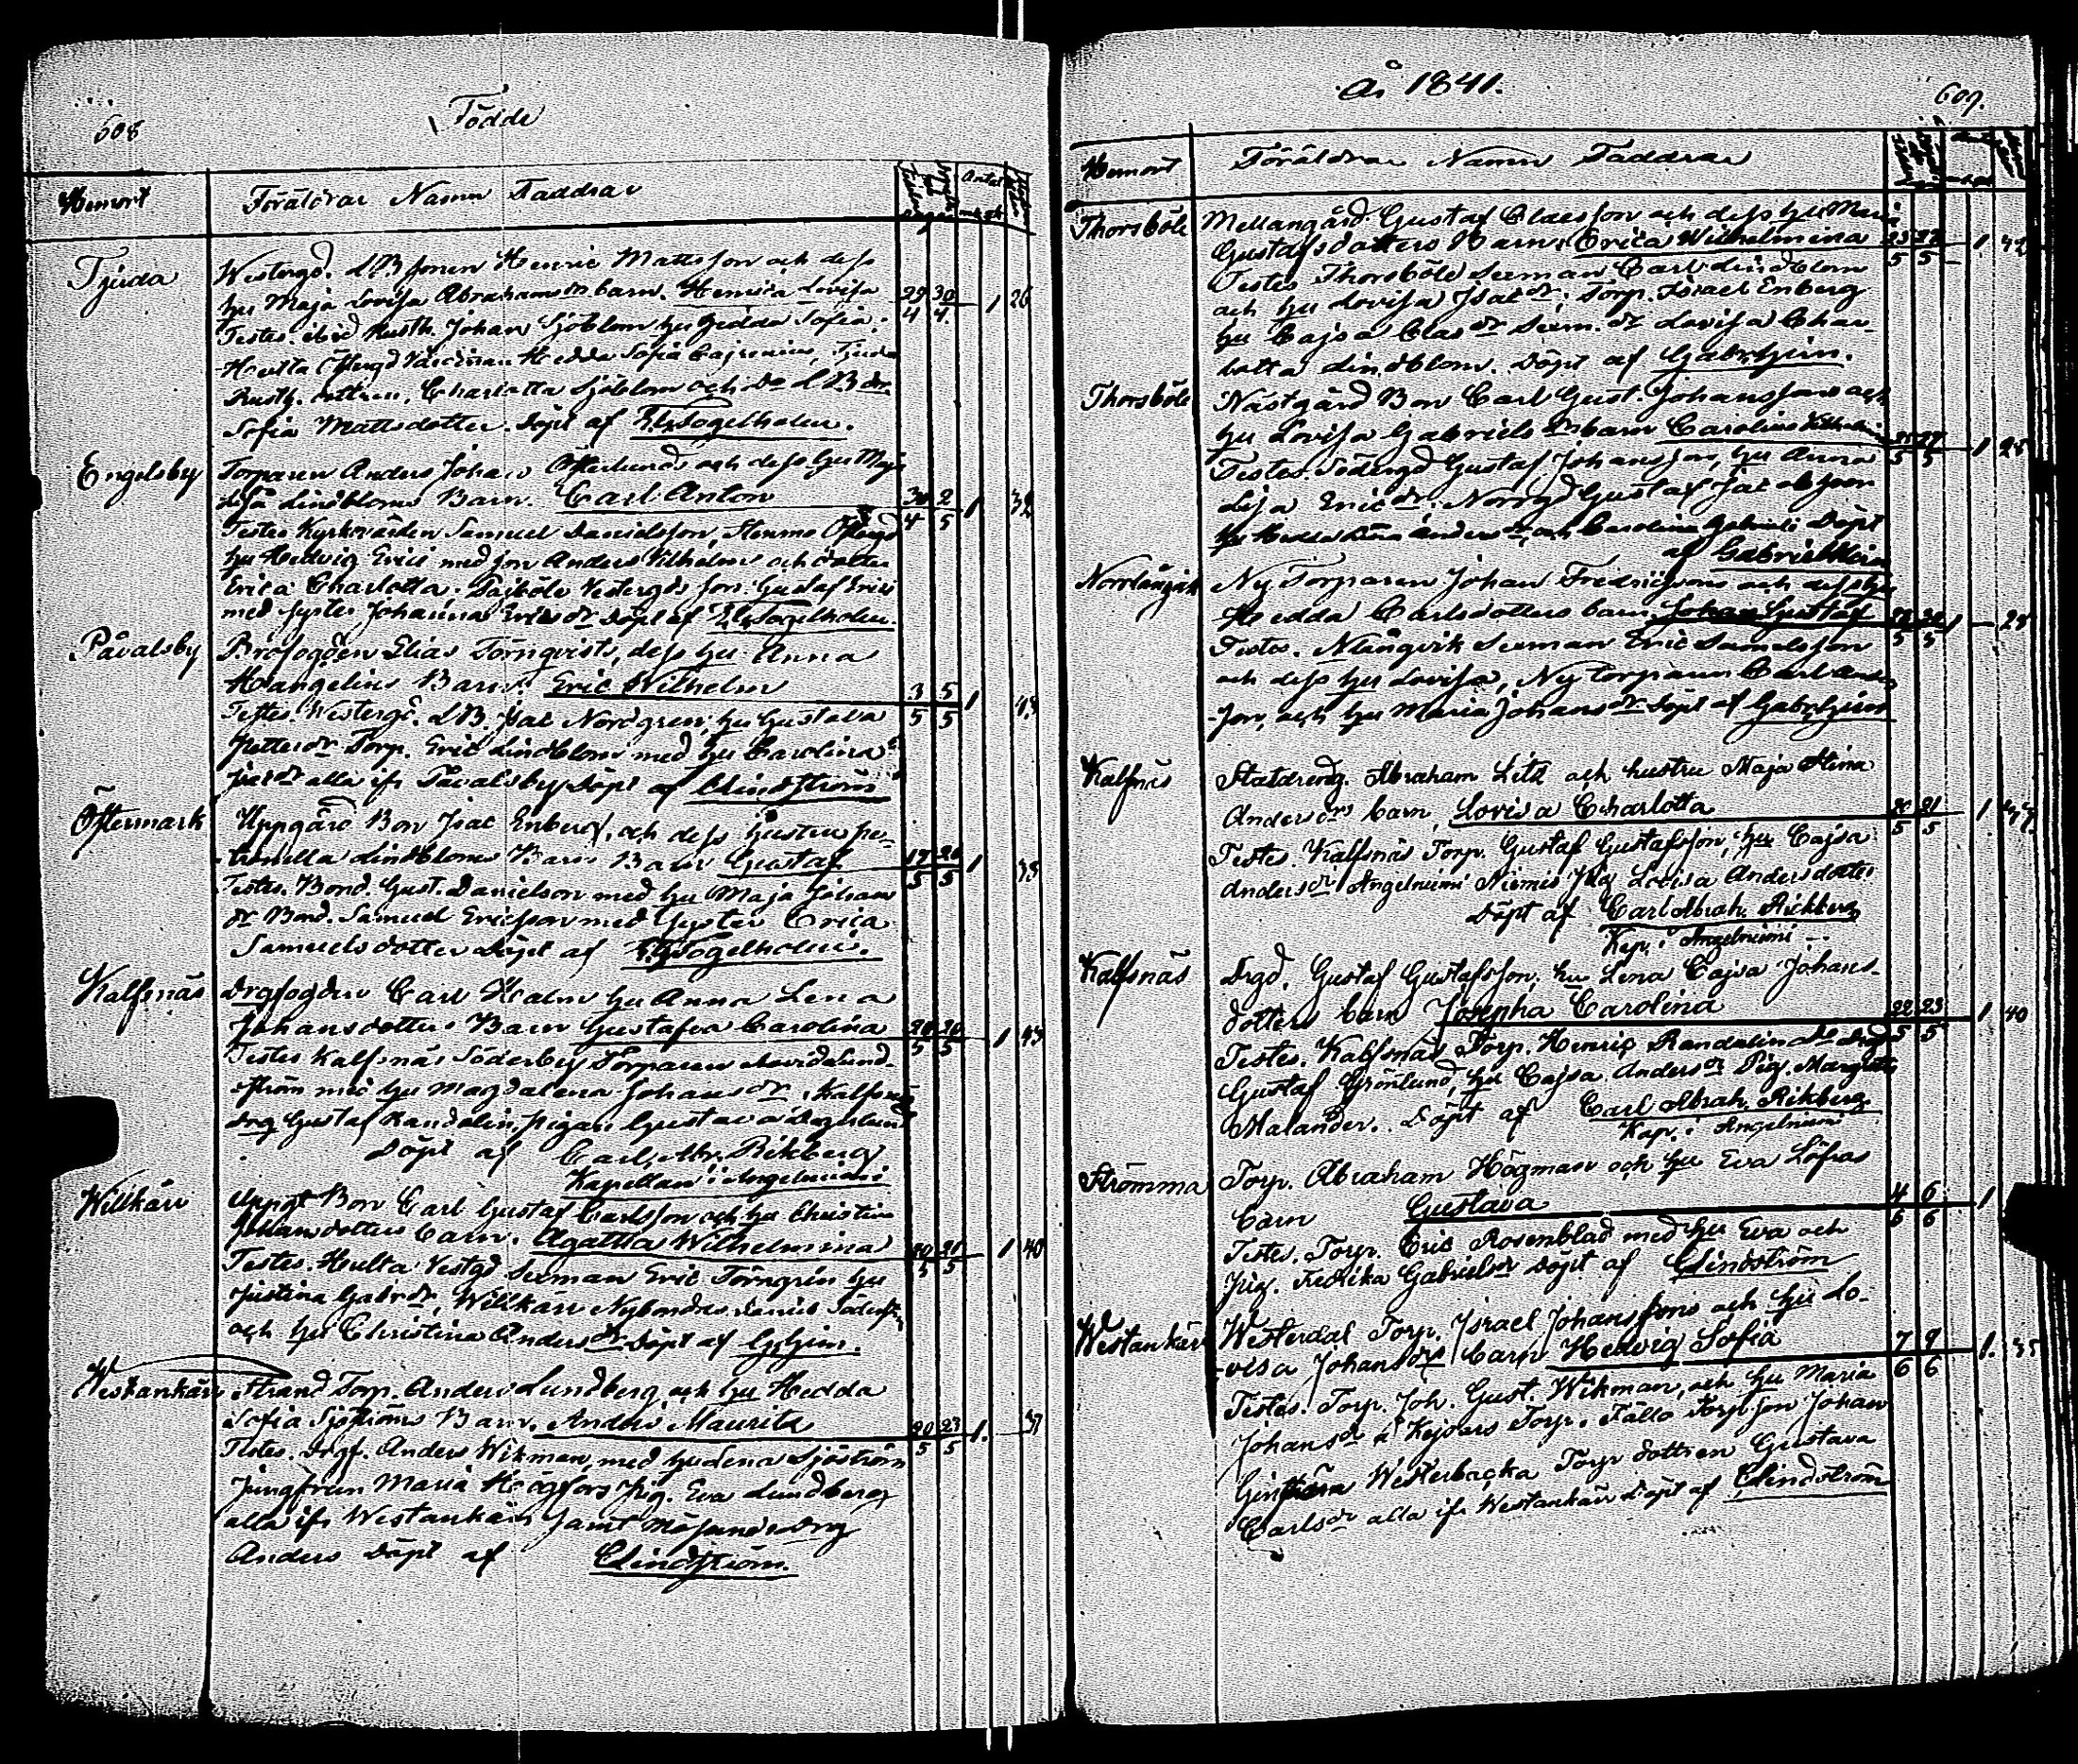 608
Födde
Hemort Föräldrar Namn Faddrar
Tjuda Westergd. LBsonen Henric Mattsson och dess
hu Maja Lovisa Abrahamsdrs barn. Henrica Lovisa 29/4 30/4 1 26
Testes. ibid Rusth. Johan Sjöblom hu Hedda Sofia.
Hulta Hedda Sofia Tjuda
Rusth. dottren, Charlotta Sjöblom och Do LB dr
Sofia Mattsdotter. Döpt af Fogelholm.
Engelsby Torparen Anders Johan Österlunds och dess hu Maja
Lindbloms Barn. Carl Anton 30/4 2/5 1 32
Testes Kyrkovärden Samuel Danielsson,
hu Hedvig Erici med son Anders Vilhelm och dotter
Erica Charlotta. Pajböle Vestergds son: Gustaf Erics
med syster Johanna Ericsdr döpt af Fogelholm.
Påvalsby Brofogden Elias Törnqvists, dess hu Anna
Hangelins Barn. Eric Wilhelm 3/5 5/5 1 43
Testes. Westergd. LB Isac Nordgren, hu Gustava
Pettersdr Torp. Eric Lindblom med hu Carolina
Isacdr alla ifr Påvalsby Döpt af CLindström
Östermark Uppgård Bon Isac Enberg, och dess hustru Pe-
tronella Lindbloms Barn Gustaf 19/5 20/5 1 35
Testes. Bond. Gust. Danielson med hu Maja Johans
dr Bond. Samuel Ericsson med Syster Erica
Samuelsdotter Döpt af Fogelholm.
Kalfsnäs Drgfogden Carl Halm hu Anna Lena
Johansdotters Barn Gustafva Carolina 20/5 20/5 1 43
Testes Kalfsnäs Söderby Torparen Lund-
ström med hu Magdalena Johansdr, Kalfsnäs
drg Gustaf Randelin, pigan Gustava
Döpt af Carl Abr. Rikberg
Kapellan i Angelniemi
Willkärr Uppgt Bon Carl Gustaf Carlsson och hu Christina
Johansdotters barn. Agatha Wilhelmina 20/5 21/5 1 40
Testes. Hulta Vestgd Sexman Eric Törngren hu
Justina Gabrdr, Willkärr Nybondes Daniel
och hu Christina Andersdr Döpt af
Westankärr Strand Torp. Anders Lundberg och hu Hedda
Sofia Sjöströms Barn. Anders Mauritz 20/5 23/5 1. 37
Testes. Drgf. Anders Wikman, med hu Lena Sjöström
Jungfrun Maria Högfors Pig. Eva Lundberg
alla ifr Westankärr samt drg
Anders Döpt af CLindström.
Å 1841.
609.
Hemort Föräldrar Namn Faddrar
Thorsböle Mellangård Gustaf Claesson och dess hu Maria
Gustafsdotters Barn Erica Wilhelmina 23/5 27/5 1 42
Testes Thorsböle Sexman Carl Lindblom
och hu Lovisa Isacdr, Torp. Israel Enberg
hu Cajsa Clasdr Sexm. dr Lovisa Char-
lotta Lindblom. Döpt af
Thorsböle Nästgård Bon Carl Gust. Johanssons och
hu Lovisa Gabrielsdrs barn Carolina 1 25
Testes. Södergd Gustaf Johansson, hu Anna
Lisa Ericdr. Norrgd Gustaf Jacobsson
hu Hedda Andersdr, och Carolina Gabriels Döpt
af
Norrlångvik Ny Torparen Johan Fredricssons och dess hu
Hedda Carlsdotters barn. Johan Gustaf 1 28
Testes. Nlångvik Sexman Eric Samelsson
och dess hu Lovisa, Ny torparen Carl Anders-
son, och hu Maria Johansdr Döpt af
Kalfsnäs Statdreng. Abraham Lild och hustru Maja Stina
Andersdrs barn, Lovisa Charlotta 20/5 21/5 1 44
Testes. Kalfsnäs Torp. Gustaf Gustafsson, hu Cajsa
Andersdr Angelniemi Niemis Pig Lovisa Andersdotter
Döpt af Carl Abrah. Rikberg
Kap. i Angelniemi
Kalfsnäs Drgd. Gustaf Gustafsson, hu Lena Cajsa Johans-
dotters barn Josepha Carolina 22/5 23/5 1 40
Testes. Kalfsnäs Torp. Henric Randelin Do drgd
Gustaf Grönlund, hu Cajsa Andersdr Pig. Margreta
Malander. Döpt af Carl Abrah. Rikberg
Kap. i Angelniemi
Strömma Torp. Abraham Högman och hu Eva Löfras
barn Gustava 4/6 6/6 1
Testes. Torp. Eric Rosenblad med hu Eva och
Pig. Fredrika Gabrielsdr Döpt af CLindström
Westankärr Westerdal Torp. Israel Johanssons och hu Lo-
visa Johansdrs barn Hedvig Sofia 7/6 9/6 1. 35
Testes. Torp. Joh. Gust. Wikman, och hu Maria
Johansdr Torp. Fällo Torp son Johan
Westerbacka Torp dottren Gustava
Carlsdr alla ifr Westankärr Döpt af CLindström